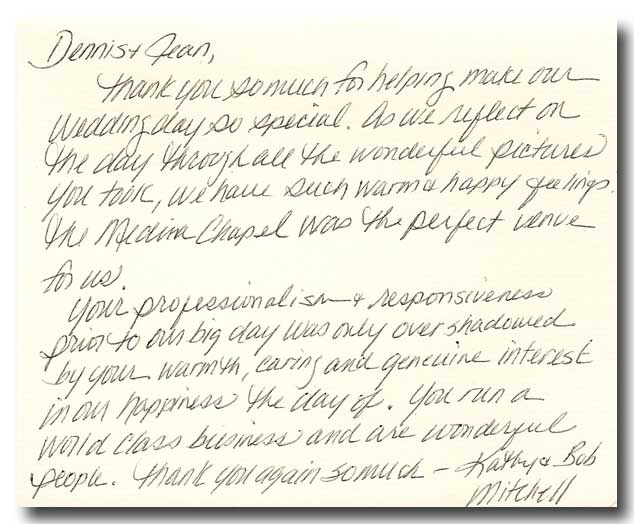 Dennis + Jean,
Thank you so much for helping make our
wedding day so special. As we reflect on
the day through all the wonderful pictures
you took, we have such warm & happy feelings.
The Medina Chapel was the perfect venue
for us.
Your professionalism & responsiveness
prior to our big day was only over shadowed
by your warmth, caring and genuine interest
in our happiness the day of. You run a
world class business and are wonderful
people. Thank you again so much - Kathy & Bob
Mitchell